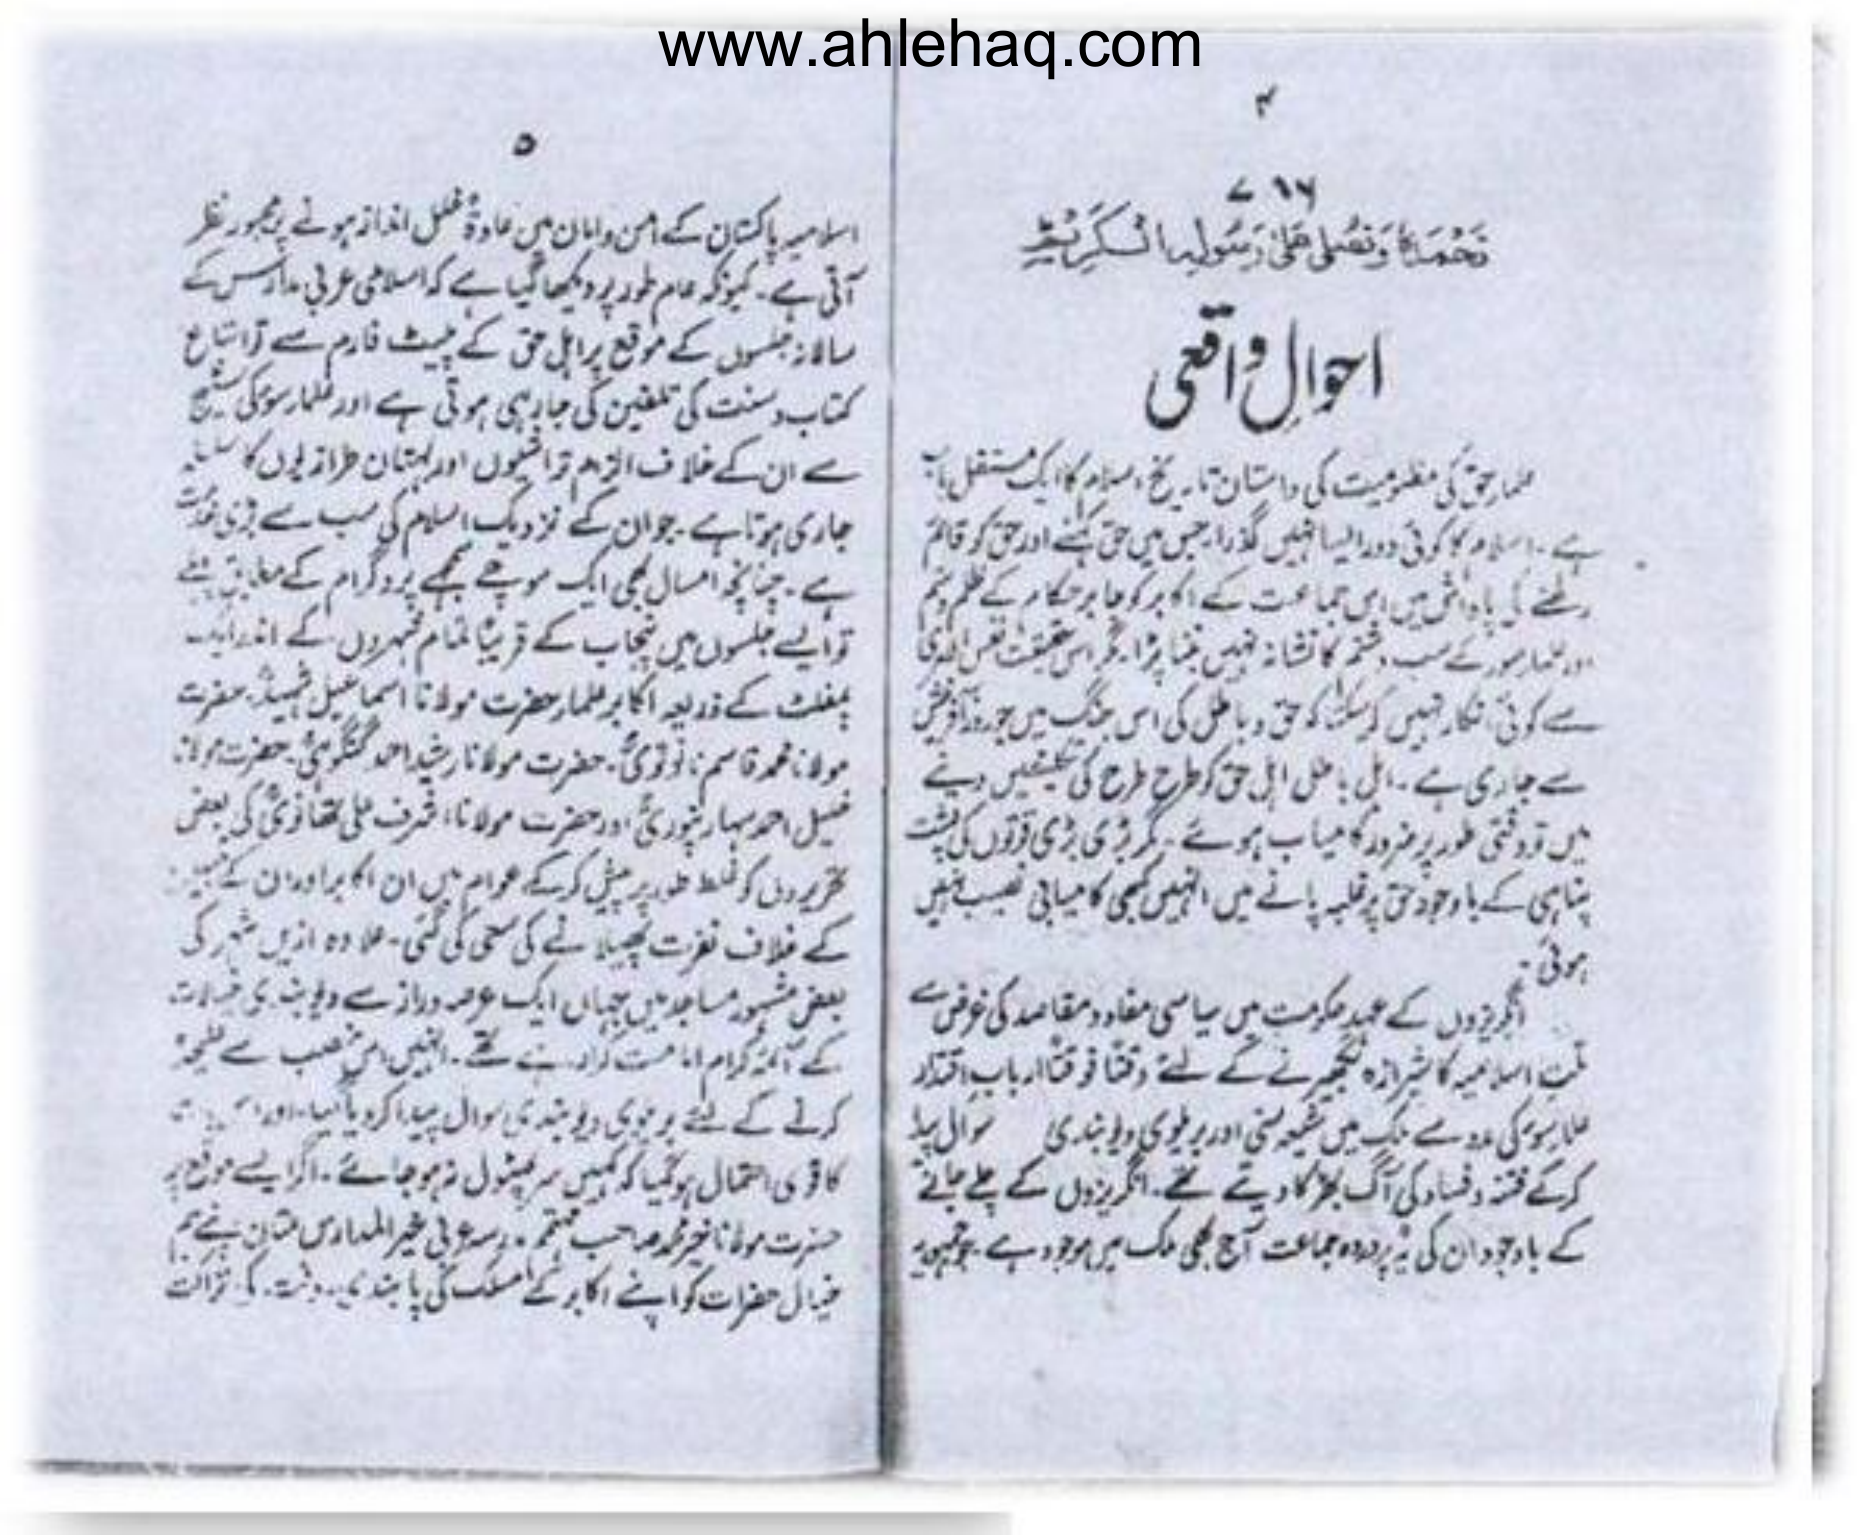 www.ahlehaq.com
۴
۷۸۶
نَحْمَدُہٗ وَنُصَلِّی عَلٰی رَسُولِہِ الْکَرِیْم
احوالِ واقعی
علماء حق کی مظلومیت کی داستان تاریخ اسلام کا ایک مستقل باب
ہے۔ اسلام کا کوئی دور ایسا نہیں گذرا جس میں حق کہنے اور حق کو قائم
رکھنے کی پاداش میں اس جماعت کے اکابر کو جابر حکام کے ظلم و ستم
اور علماء سوء کے سب و شتم کا نشانہ نہیں بننا پڑا۔ مگر اس حقیقت نفس الامری
سے کوئی انکار نہیں کر سکتا کہ حق و باطل کی اس جنگ میں جو روزِ آفرینش
سے جاری ہے۔ اہل باطل اہل حق کو طرح طرح کی تکلیفیں دینے
میں تو وقتی طور پر ضرور کامیاب ہوئے۔ مگر بڑی بڑی قوتوں کی پشت
پناہی کے باوجود حق پر غلبہ پانے میں انہیں کبھی کامیابی نصیب نہیں
ہوئی۔
انگریزوں کے عہد حکومت میں سیاسی مفاد و مقاصد کی غرض سے
ملت اسلامیہ کا شیرازہ بکھیرنے کے لئے وقتاً فوقتاً ارباب اقتدار
علماء سوء کی مدد سے ملک میں شیعہ سنی اور بریلوی دیوبندی سوال پیدا
کر کے فتنہ و فساد کی آگ بھڑکا دیتے تھے۔ انگریزوں کے چلے جانے
کے باوجود ان کی یہ پروردہ جماعت آج بھی ملک میں موجود ہے۔ جو جمہوریہ
۵
اسلامیہ پاکستان کے امن و امان میں عادۃً خلل انداز ہونے پر مجبور نظر
آتی ہے۔ کیونکہ عام طور پر دیکھا گیا ہے کہ اسلامی عربی مدارس کے
سالانہ جلسوں کے موقع پر اہل حق کے پلیٹ فارم سے تو اتباع
کتاب و سنت کی تلقین کی جا رہی ہوتی ہے اور علماء سوء کی سٹیج
سے ان کے خلاف الزام تراشیوں اور بہتان طرازیوں کا سلسلہ
جاری ہوتا ہے۔ جو ان کے نزدیک اسلام کی سب سے بڑی خدمت
ہے۔ چنانچہ امسال بھی ایک سوچے سمجھے پروگرام کے مطابق پہلے
تو ایسے جلسوں میں پنجاب کے قریباً تمام شہروں کے اندر ایک
پمفلٹ کے ذریعہ اکابر علماء حضرت مولانا اسماعیل شہیدؒ۔ حضرت
مولانا محمد قاسم نانوتویؒ۔ حضرت مولانا رشید احمد گنگوہیؒ۔ حضرت مولانا
خلیل احمد سہارنپوریؒ اور حضرت مولانا اشرف علی تھانویؒ کی بعض
تحریروں کو غلط طور پر پیش کر کے عوام میں ان اکابر اور ان کے متبعین
کے خلاف نفرت پھیلانے کی سعی کی گئی۔ علاوہ ازیں شہر کی
بعض مشہور مساجد میں جہاں ایک عرصہ دراز سے دیوبندی خیالات
کے ائمہ کرام امامت کرا رہے تھے۔ انہیں اس منصب سے علیحدہ
کرنے کے لئے بریلوی دیوبندی سوال پیدا کر دیا گیا۔ اور اس بات
کا قوی احتمال ہو گیا کہ کہیں سر پھٹول نہ ہو جائے۔ اگر ایسے موقع پر
حضرت مولانا خیر محمد صاحب مہتمم مدرسہ عربی خیر المدارس ملتان اپنے ہم
خیال حضرات کو اپنے اکابر کے مسلک کی پابندی۔ وقت کی نزاکت